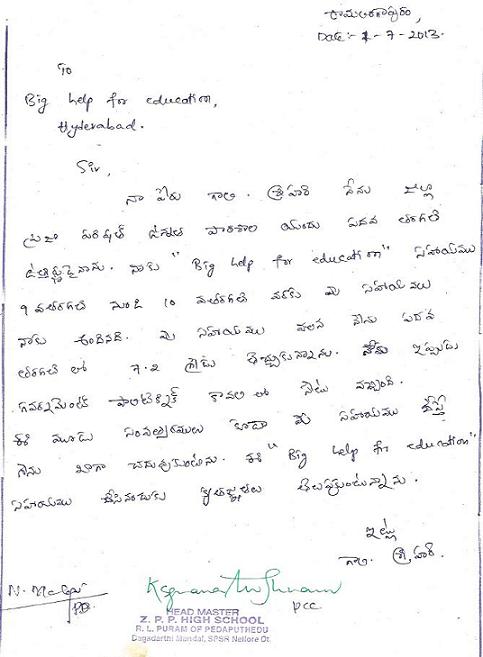 రామలింగాపురం,
Date:- 1-7-2013.
To
Big help for education,
Hyderabad.
Sir,
నా పేరు గాలి. శ్రీహరి నేను జిల్లా
ప్రజా పరిషత్ ఉన్నత పాఠశాల యందు పదవ తరగతి
ఉత్తీర్ణుడైనాను. నాకు "Big help for education" సహాయము
9 వతరగతి నుండి 10 వతరగతి వరకు మీ సహాయము
నాకు అందినది. మీ సహాయము వలన నేను పదవ
తరగతి లో 7.2 గ్రేడు తెచ్చుకున్నాను. నేను ఇప్పుడు
గవర్నమెంట్ పాలిటెక్నిక్ కావలి లో సీటు వచ్చింది.
ఈ మూడు సంవత్సరములు కూడా మీ సహాయము చేస్తే
నేను బాగా చదువుకుంటాను. ఈ "Big help for education"
సహాయము చేసినందుకు కృతజ్ఞతలు తెలుపుకుంటున్నాను.
ఇట్లు
గాలి. శ్రీహరి.
PCC
HEAD MASTER
Z. P. P. HIGH SCHOOL
R. L. PURAM OF PEDAPUTHEDU
Dagadarthi Mandal, SPSR Nellore Dt.